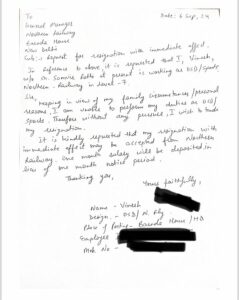 To
General Manager
Northern Railway
Baroda House
New Delhi
Date: 6 Sep, 24
Sub:- Request for resignation with immediate effect.
In reference to above, it is requested that I, Vinesh,
w/o Sh. Somvir Rathi at present is working as OSD/Sports
Northern - Railway in Level - 7.
Sir,
Keeping in view of my family circumstances/personal
reasons, I am unable to perform my duties as OSD/
Sports. Therefore without any pressure, I wish to tender
my resignation.
It is kindly requested that my resignation with
immediate effect may be accepted from Northern
Railway. One month salary will be deposited in
lieu of one month notice period.
Thanking you,
Yours faithfully,
Name - Vinesh
Design. - OSD/ N. Rly
Place of Posting - Baroda House / HQ
Employee
Mob No -